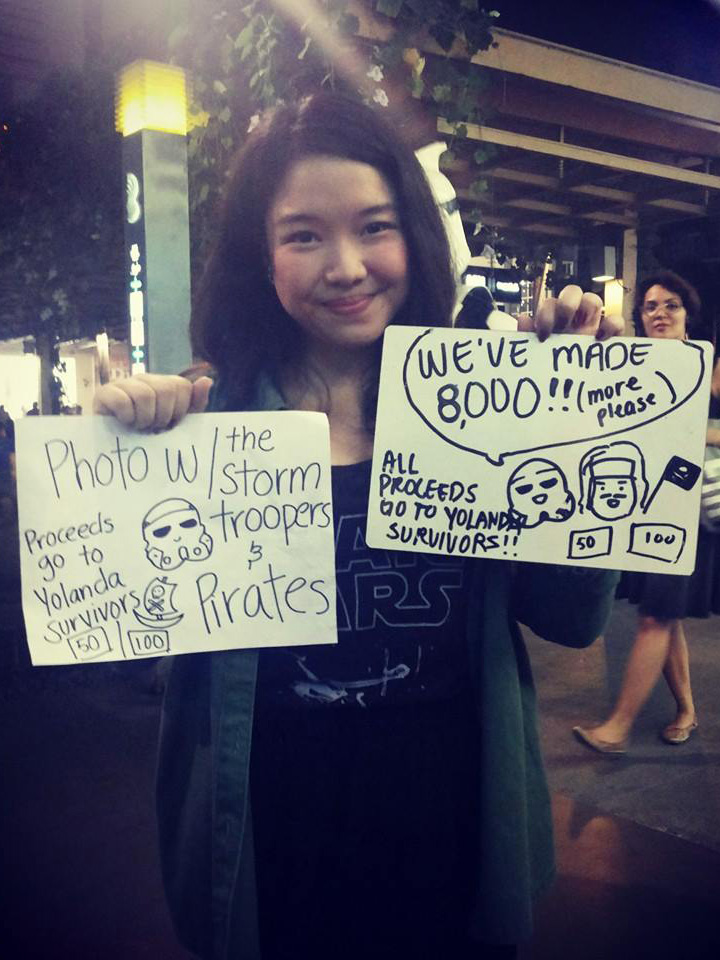 Photo w/ the
storm
troopers
&
Pirates
Proceeds
go to
Yolanda
survivors
50 / 100
WE'VE MADE
8,000!! (more
please)
ALL
PROCEEDS
GO TO YOLANDA
SURVIVORS!!
50 100
STAR
WARS